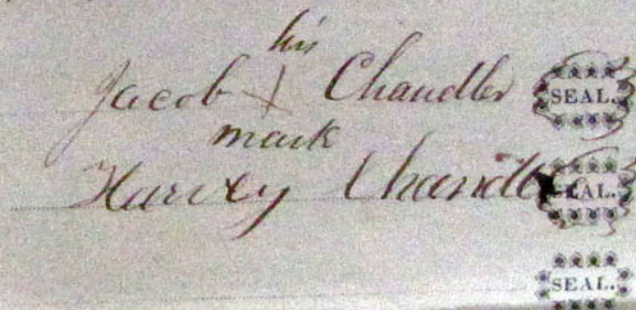 his
Jacob X Chandler SEAL.
mark
Harvey Chandler SEAL.
SEAL.